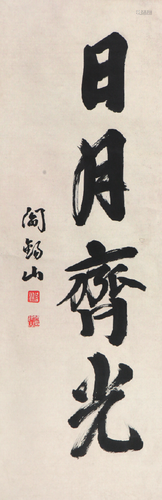 日月齊光
閻錫山